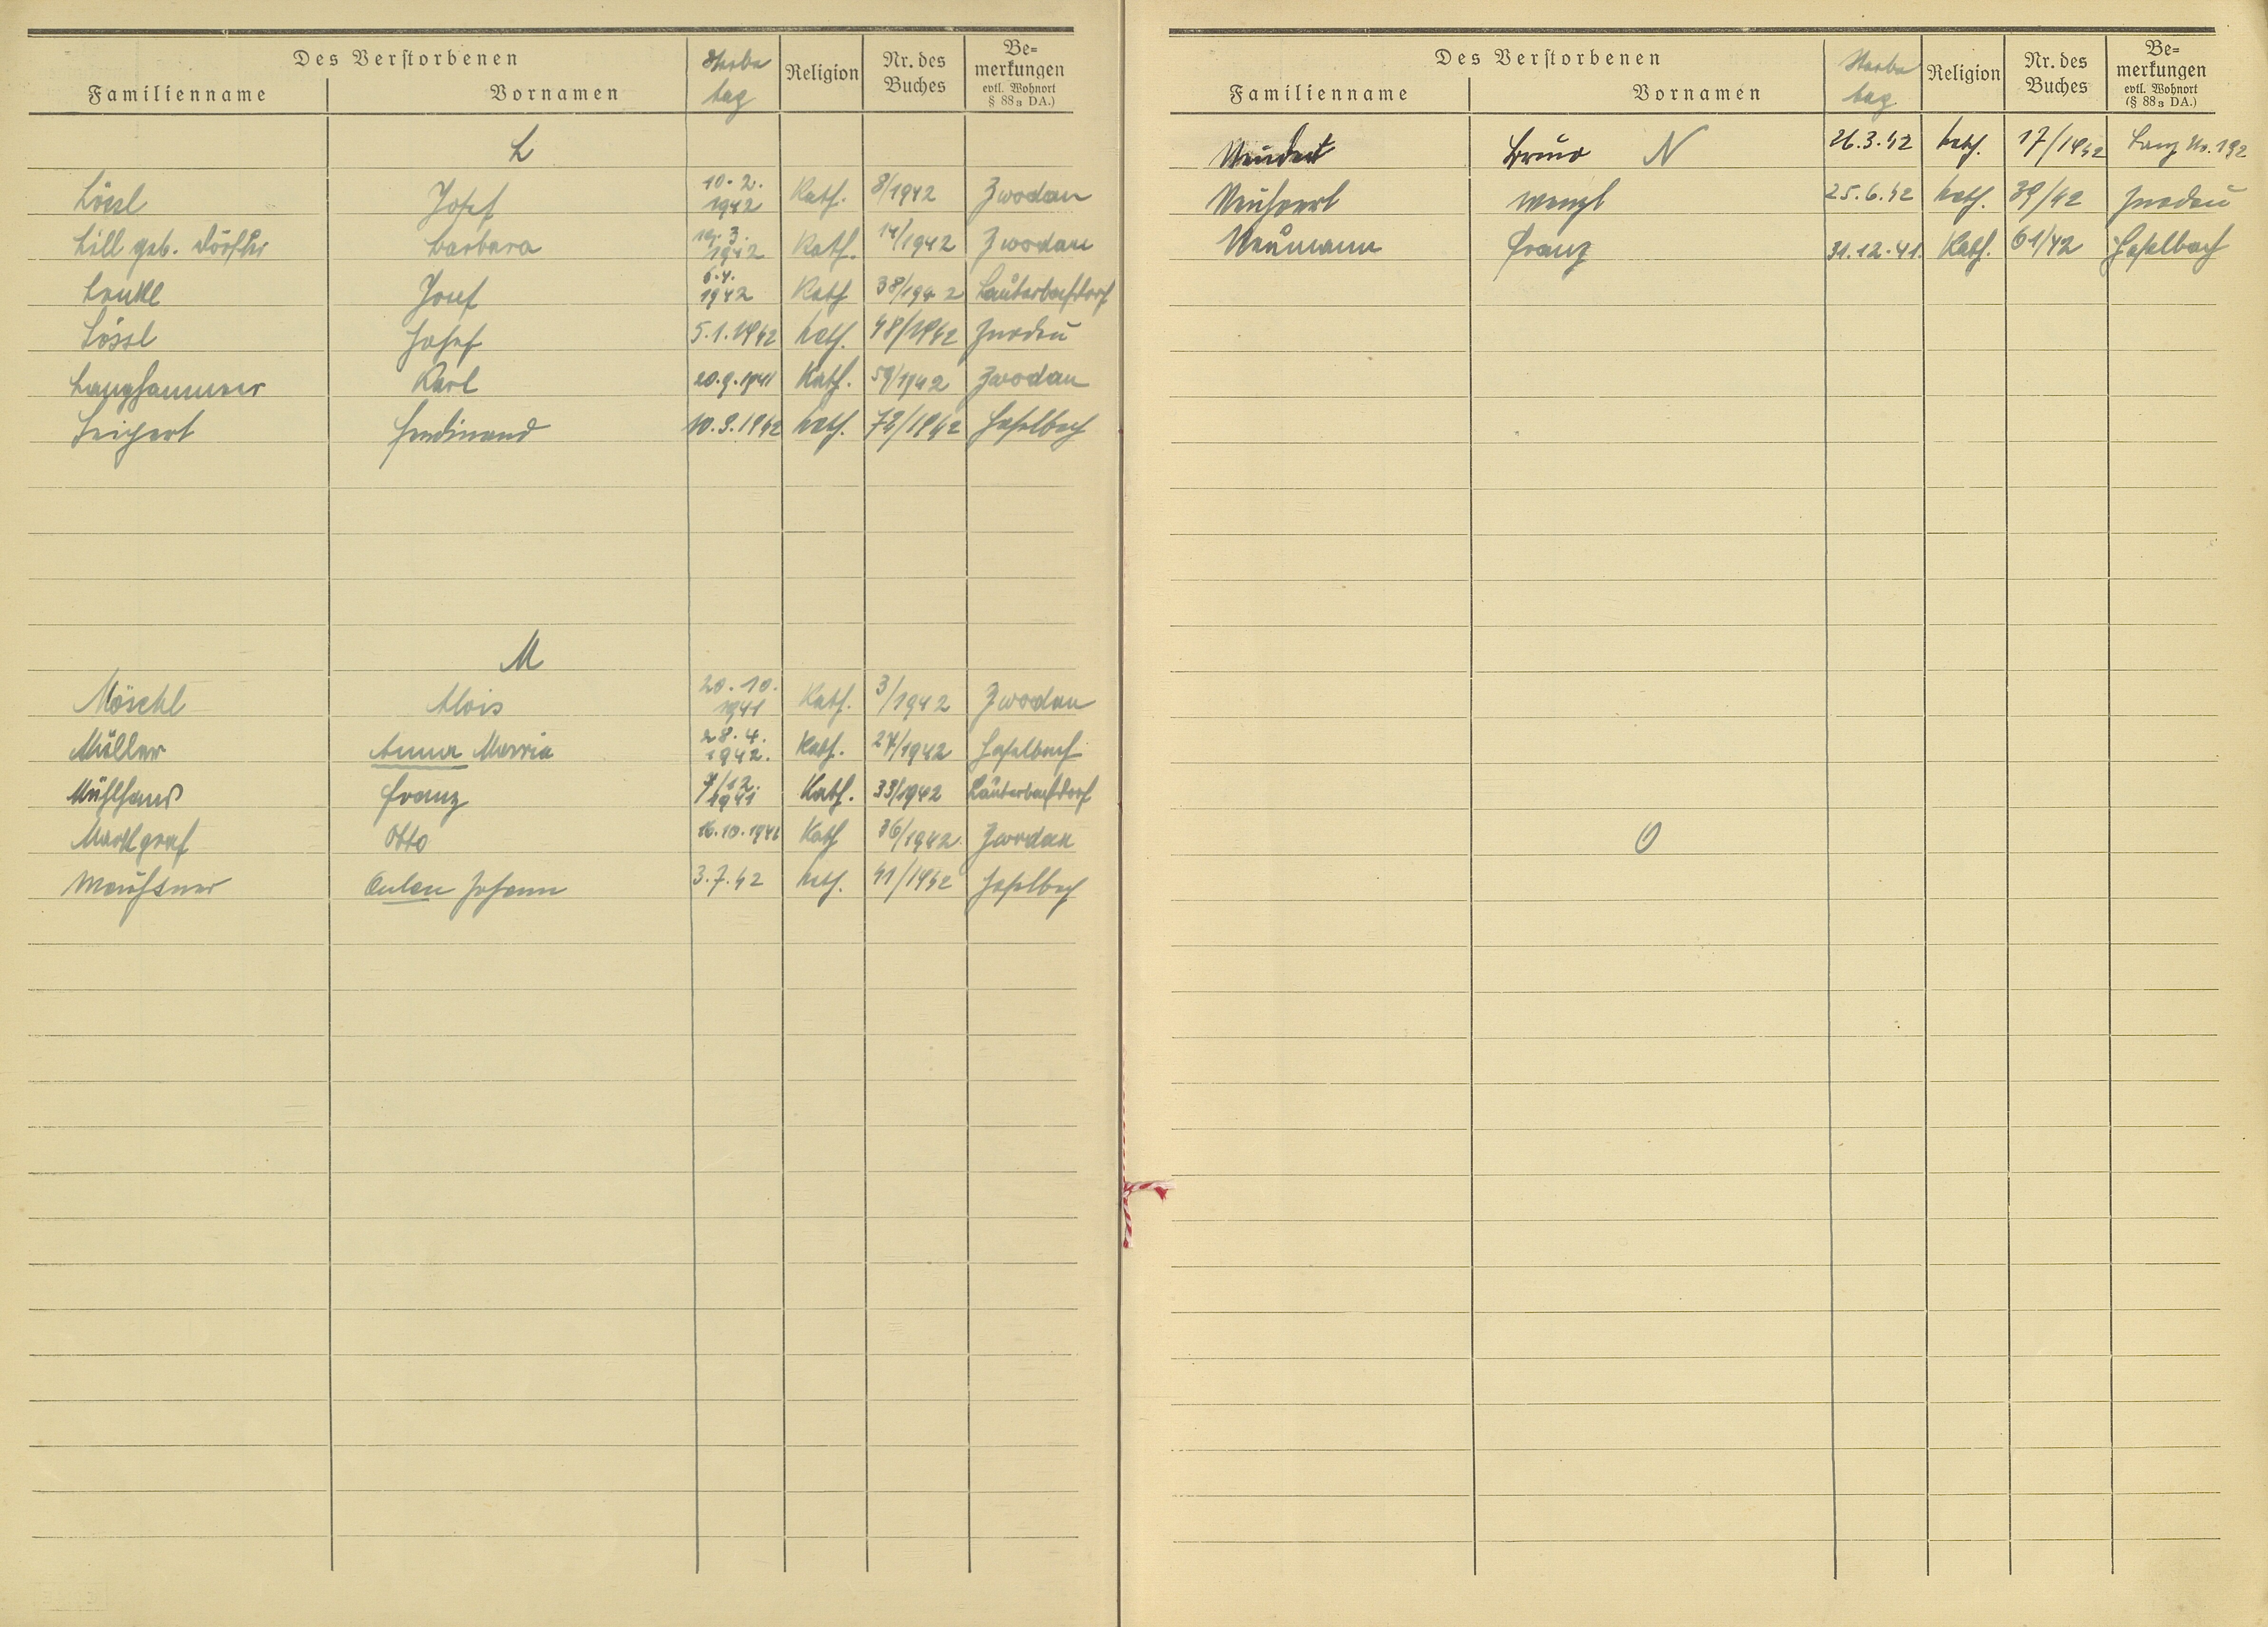 Des Verstorbenen
Familienname Vornamen Sterbe tag Religion Nr. des Buches Bemerkungen evtl. Wohnort § 88 a DA.)
L
Lössl Josef 10. 2. 1942 Kath. 8/1942 Zwodau
Lill geb. Dörfler Barbara 3. 1942 Kath. 14/1942 Zwodau
Josef 1942 Kath 38/1942 Lauterbachdorf
Lössl Josef 5.1.1942 kath. 48/1942 Zwodau
Langhammer Karl 20.9.1941 Kath. 59/1942 Zwodau
Leichert Ferdinand 10.9.1942 kath. Haselbach
M
Möschl Alois 20. 10. 1941 Kath. 3/1942 Zwodau
Müller Anna Maria 28. 4. 1942. Kath. 27/1942 Haselbach
Mühlhans Franz 7/12. 1941 Kath. 33/1942 Lauterbachdorf
Markgraf Otto 16.10.1941 Kath 36/1942 Zwodau
Anton Johann 3.7.42 kath. 41/1942 Haselbach
Des Verstorbenen
Familienname Vornamen Sterbe tag Religion Nr. des Buches Bemerkungen evtl. Wohnort (§ 88 a DA.)
Bruno N 3.42 kath. 17/1942 Lanz Nr. 192
Wenzl 25.6.42 kath. 39/42 Zwodau
Neumann Franz 31.12.41. Kath. 61/42 Haselbach
O